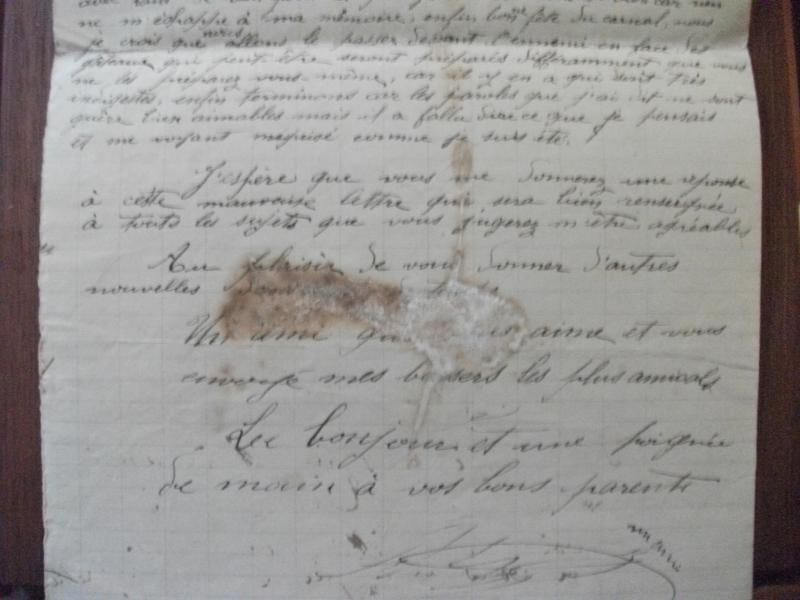 ne m'échappe à ma mémoire, enfin bonne fête du carnal, nous
je crois que nous allons le passer devant l'ennemi en face des
qui peut être seront préparés différamment que vous
ne les préparez vous-même, car il y en a qui sont très
indigestes, enfin terminons car les paroles que j'ai dit ne sont
guère bien aimables mais il a fallu dire ce que je pensais
et me voyant meprisé comme je suis été.
J'espère que vous me donnerez une réponse
à cette mauvaise lettre qui sera bien renseignée
à touts les sujets que vous jugerez m'être agréables
Au plaisir de vous donner d'autres
nouvelles
Un ami qui vous aime et vous
envoye mes baisers les plus amicals
Le bonjour et une poignée
de main à vos bons parents
un ami